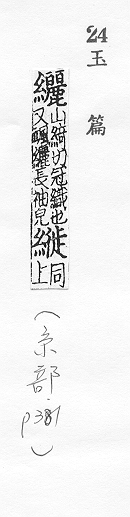 24 玉篇
纚山綺切冠織也
又颯纚長袖皃縰同上
(糸部.
p381)